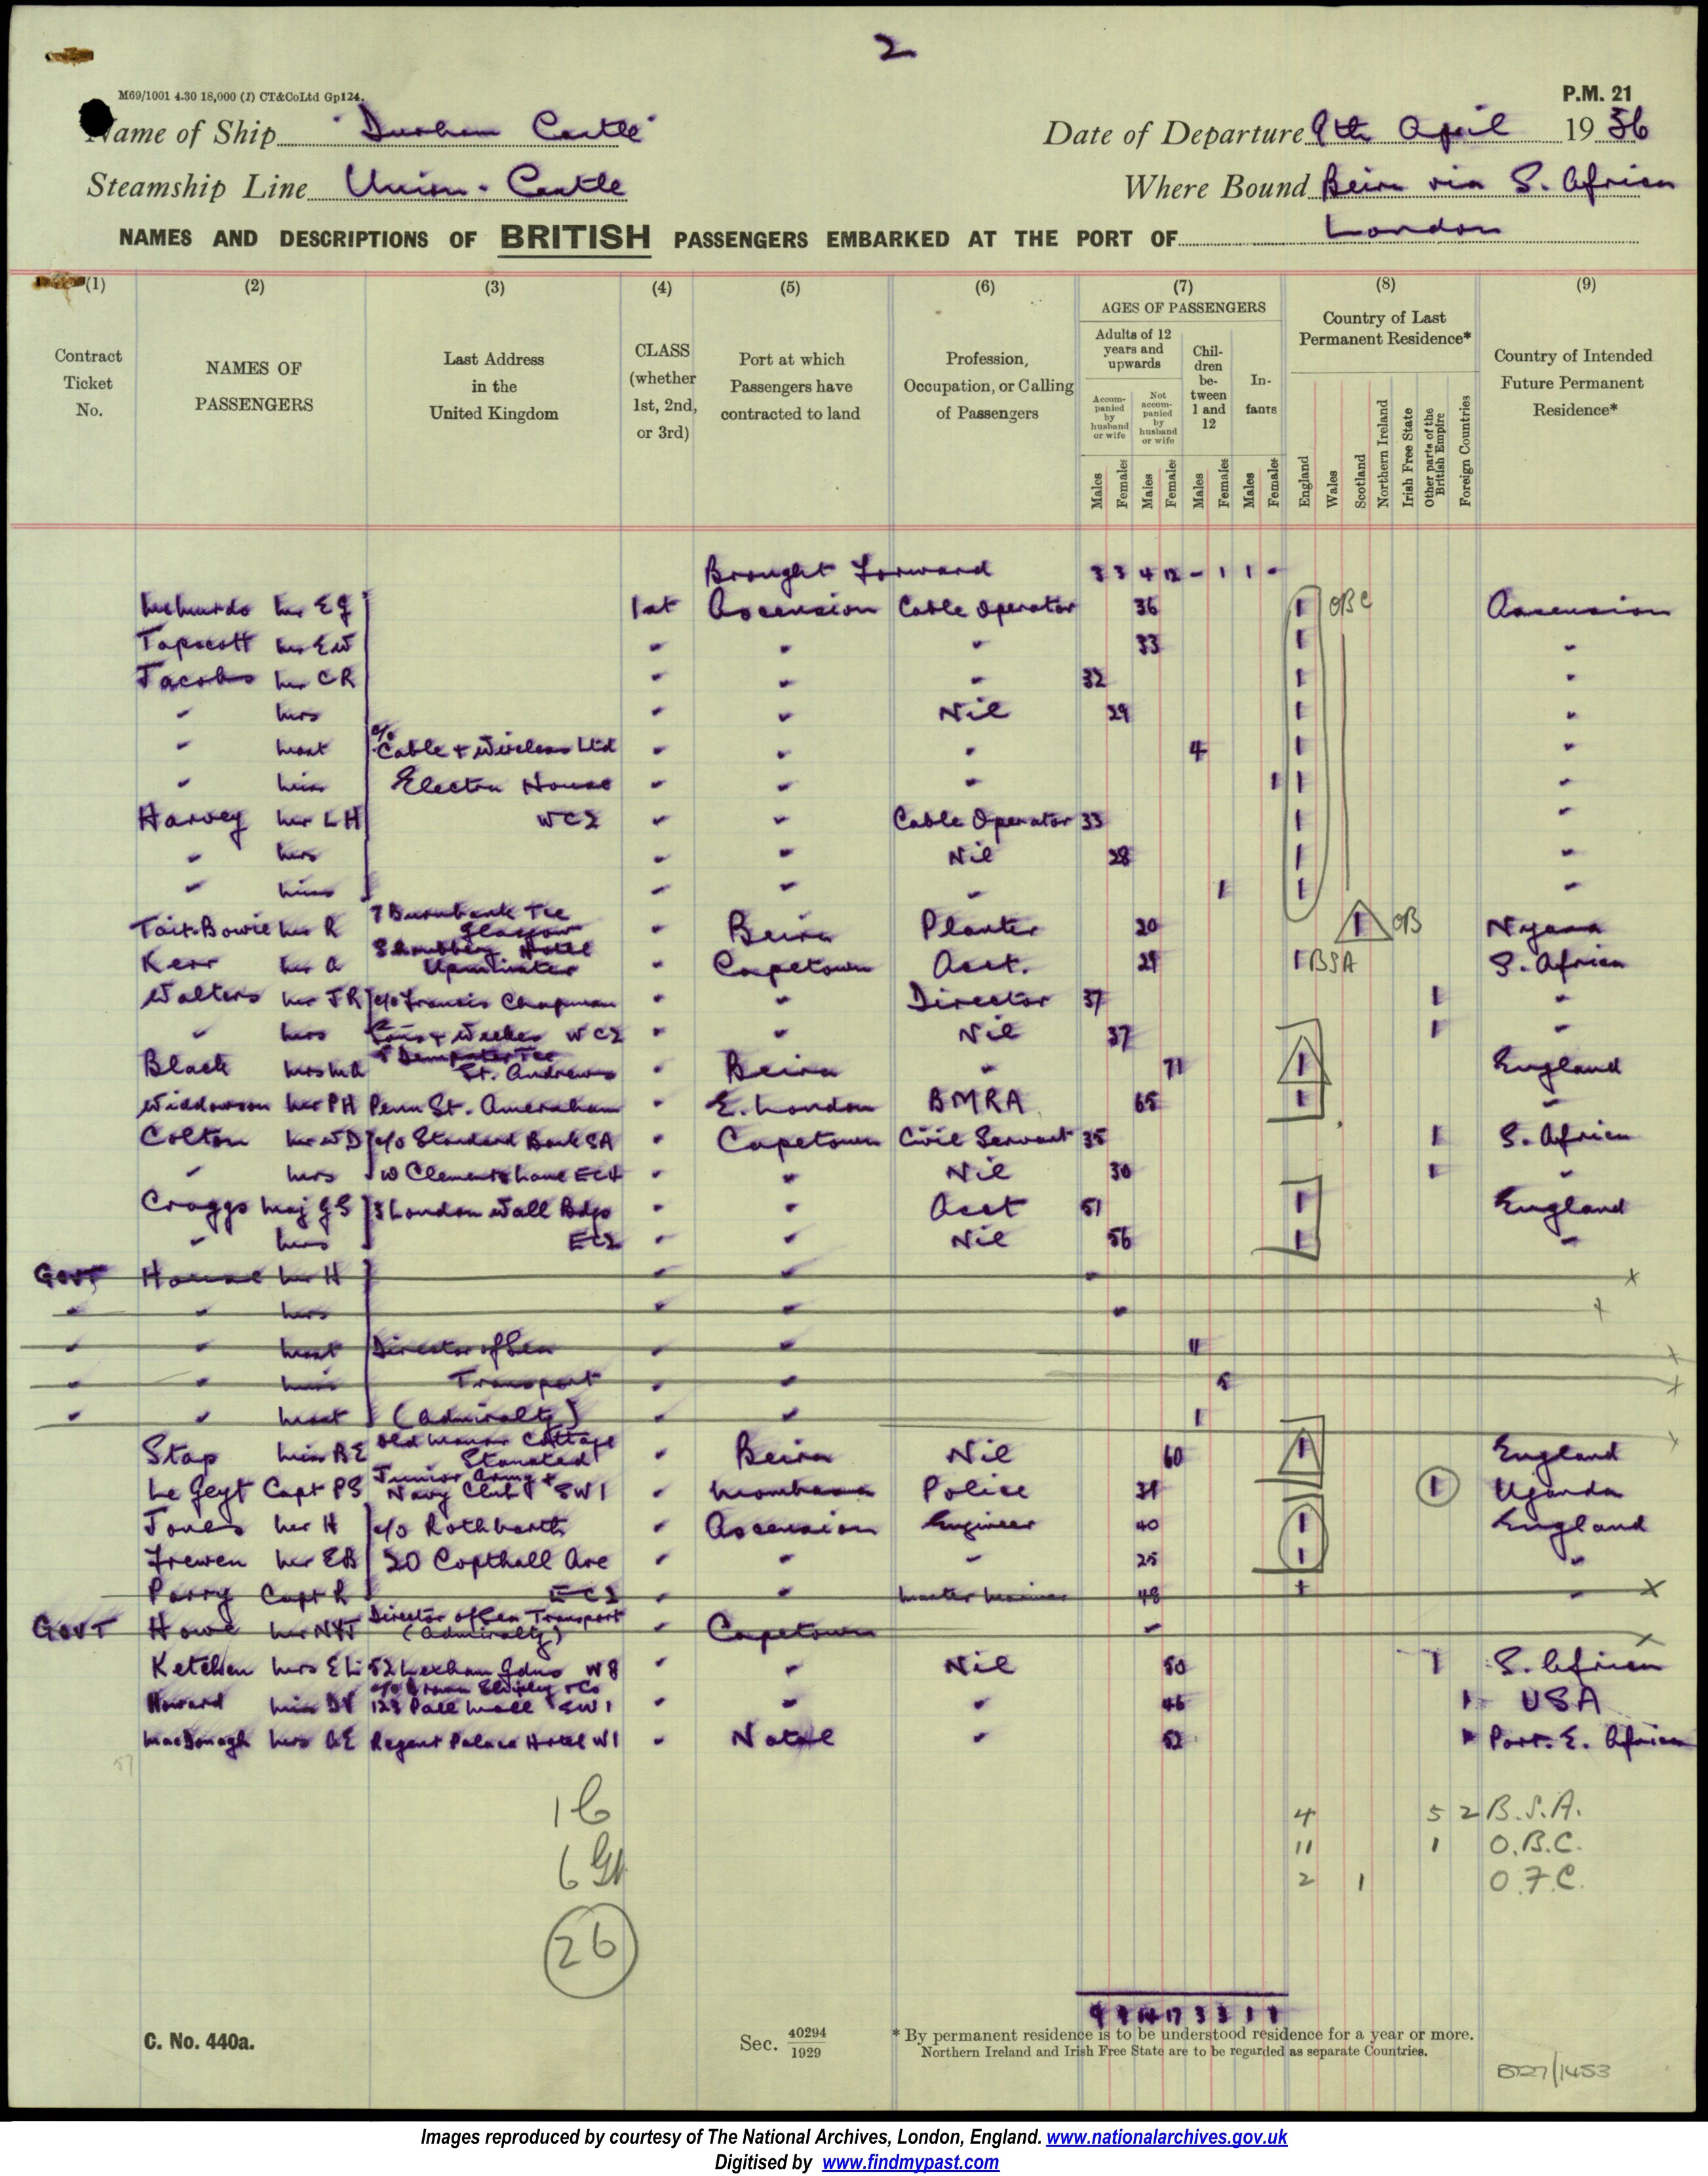 2
M69/1001 4.30 18,000 (I) CT&CoLtd Gp124.
P.M. 21
Name of Ship "Durham Castle" Date of Departure 9th April 1936
Steamship Line Union-Castle Where Bound Beira via S. Africa
NAMES AND DESCRIPTIONS OF BRITISH PASSENGERS EMBARKED AT THE PORT OF London
(1) (2) (3) (4) (5) (6) (7) (8) (9)
Contract Ticket No.
NAMES OF PASSENGERS
Last Address in the United Kingdom
CLASS (whether 1st, 2nd, or 3rd)
Port at which Passengers have contracted to land
Profession, Occupation, or Calling of Passengers
AGES OF PASSENGERS
Adults of 12 years and upwards
Accompanied by husband or wife
Not accompanied by husband or wife
Children between 1 and 12
Infants
Males Females Males Females Males Females Males Females
Country of Last Permanent Residence*
England Wales Scotland Northern Ireland Irish Free State Other parts of the British Empire Foreign Countries
Country of Intended Future Permanent Residence*
Brought Forward 3 3 4 12 - 1 1 -
Mr EG 1st Ascension Cable Operator 36 1 OBC Ascension
Tapscott Mr EW " " " 33 1 "
Jacobs Mr CR " " " 32 1 "
" Mrs " " Nil 29 1 "
" Mast c/o Cable & Wireless Ltd " " " 4 1 "
" Miss Electra House " " " 1 1 "
Harvey Mr LH WC2 " " Cable Operator 33 1 "
" Mrs " " Nil 28 1 "
" Miss " " " 1 1 "
Tait-Bowie Mr R 7 Burnbank Tce Glasgow Beira Planter 20 1 OB Nyasa
Kerr Mr A Shrubbery Hotel Upminster " Capetown Acct. 29 1 BSA S. Africa
Walters Mr JR c/o Francis Chapman " " Director 37 1 "
" Mrs Sons & Weekes WC2 " " Nil 37 1 "
Black Mrs MA 5 Dempster Tce St. Andrews " Beira " 71 1 England
Widdowson Mr PH Penn St. Amersham " E. London BMRA 65 1 "
Colton Mr WD c/o Standard Bank SA " Capetown Civil Servant 35 1 S. Africa
" Mrs 10 Clements Lane EC4 " " Nil 30 1 "
Craggs Maj GS 3 London Wall Bdgs " " Acct 51 1 England
" Mrs EC2 " " Nil 56 1 "
GOVT Mr H " " - x
" " Mrs " " - x
" " Mast Director of Sea " " 11 x
" " Miss Transport " " x
" " Mast (Admiralty) " " 1 x
Stap Miss BE Old Manor Cottage Stansted " Beira Nil 60 1 England
Le Geyt Capt PS Junior Army & Navy Club SW1 " Mombasa Police 39 1 Uganda
Jones Mr H c/o Rothbarth " Ascension Engineer 40 1 England
Frewen Mr EB 20 Copthall Ave " " " 25 1 "
Parry Capt R EC2 " " Master Mariner 48 1 " x
GOVT Howe Mr Director of Sea Transport (Admiralty) " Capetown - x
Ketchen Mrs 52 Lexham Gdns W8 " " Nil 50 1 S. Africa
Howard Miss DV c/o Brown Shipley & Co 123 Pall Mall SW1 " " " 46 1 USA
MacDonagh Mrs AE Regent Palace Hotel W1 " Natal " 52 1 Port. E. Africa
4 5 2 B.S.A.
11 1 O.B.C.
2 1 O.F.C.
26
9 9 14 17 3 3 1 1
C. No. 440a.
Sec. 40294/1929
* By permanent residence is to be understood residence for a year or more.
Northern Ireland and Irish Free State are to be regarded as separate Countries.
BT27/1453
Images reproduced by courtesy of The National Archives, London, England. www.nationalarchives.gov.uk
Digitised by www.findmypast.com